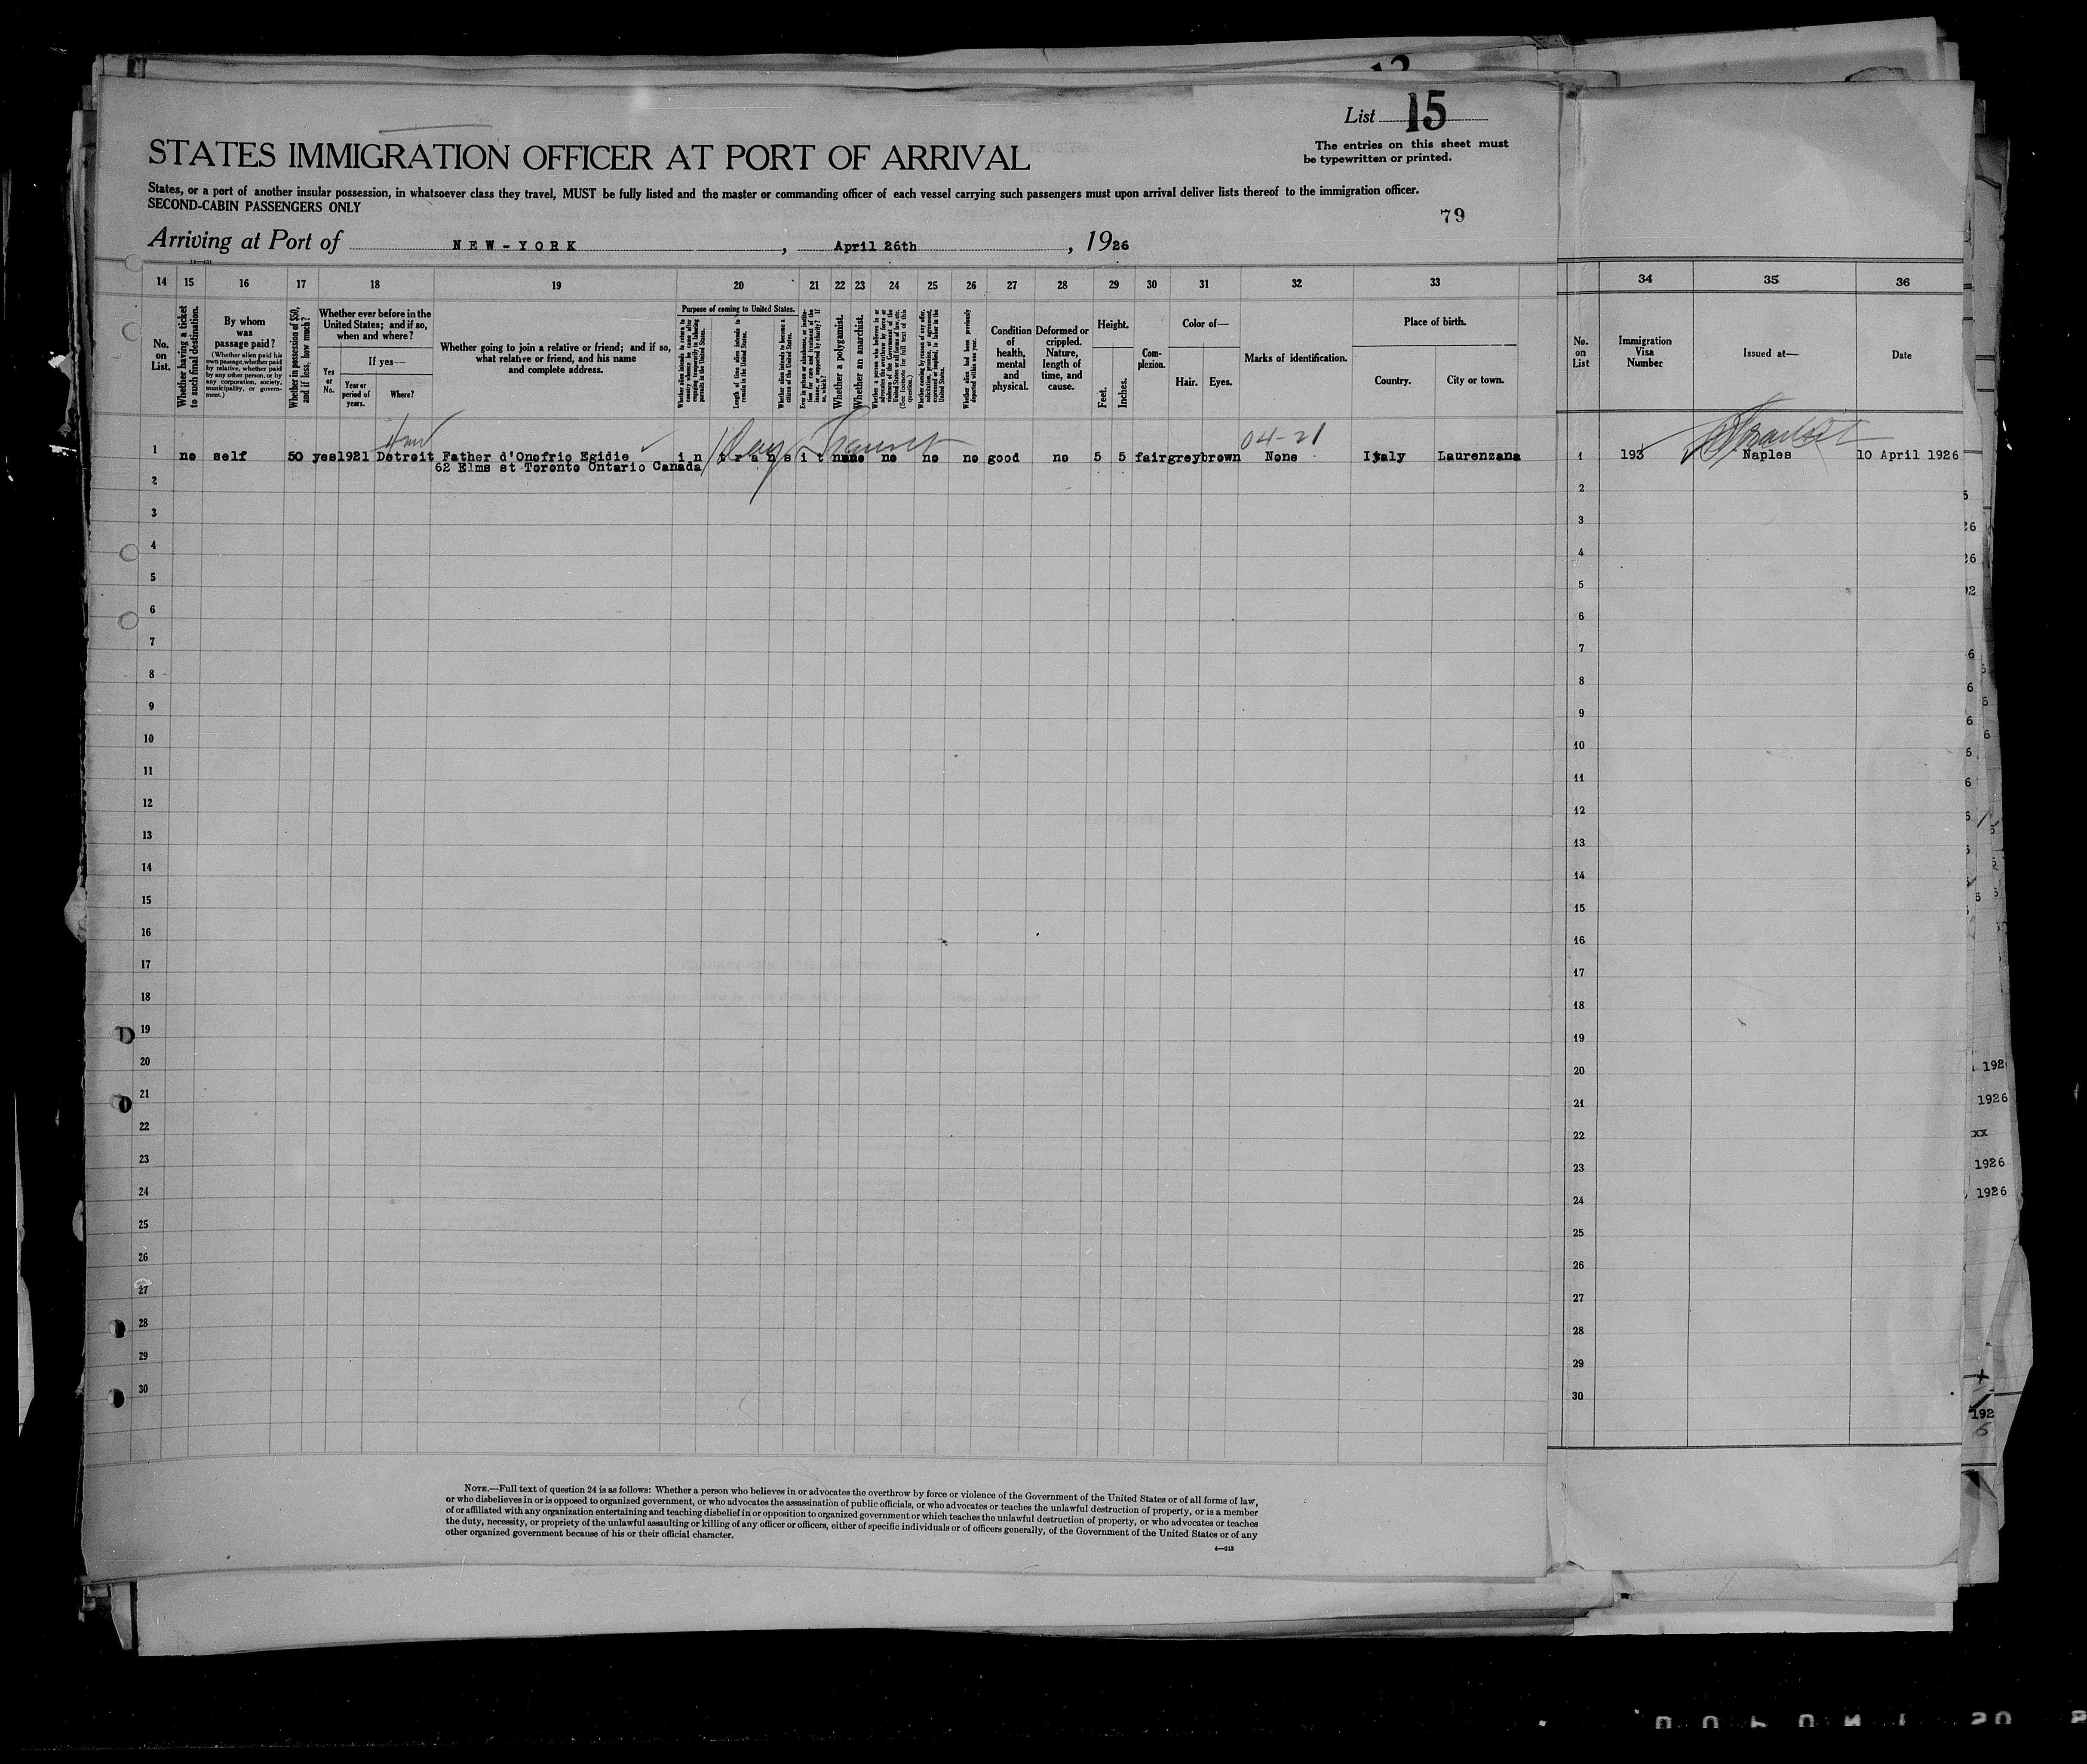 List 15
The entries on this sheet must
be typewritten or printed.
STATES IMMIGRATION OFFICER AT PORT OF ARRIVAL
States, or a port of another insular possession, in whatsoever class they travel, MUST be fully listed and the master or commanding officer of each vessel carrying such passengers must upon arrival deliver lists thereof to the immigration officer.
SECOND-CABIN PASSENGERS ONLY
79
Arriving at Port of NEW-YORK, April 26th, 1926
14 15 16 17 18 19 20 21 22 23 24 25 26 27 28 29 30 31 32 33 34 35 36
No. on List.
Whether having a ticket to such final destination.
By whom was passage paid?
(Whether alien paid his own passage, whether paid by relative, whether paid by any other person, or by any corporation, society, municipality, or government.)
Whether in possession of $50, and if less, how much?
Whether ever before in the United States; and if so, when and where?
If yes—
Yes or No.
Year or period of years.
Where?
Whether going to join a relative or friend; and if so, what relative or friend, and his name and complete address.
Purpose of coming to United States.
Length of time alien intends to remain in the United States.
Whether alien intends to become a citizen of the United States.
Whether a polygamist.
Whether an anarchist.
Whether alien had been previously deported within one year.
Condition of health, mental and physical.
Deformed or crippled. Nature, length of time, and cause.
Height.
Feet.
Inches.
Complexion.
Color of—
Hair.
Eyes.
Marks of identification.
Place of birth.
Country.
City or town.
No. on List
Immigration Visa Number
Issued at—
Date
04-21
1 no self 50 yes 1921 Detroit Father d'Onofrio Egidie in transit no no no no no good no 5 5 fair grey brown None Italy Laurenzana 1 193 Naples 10 April 1926
62 Elms st Toronto Ontario Canada
Transit
2 2
3 3
4 4
5 5
6 6
7 7
8 8
9 9
10 10
11 11
12 12
13 13
14 14
15 15
16 16
17 17
18 18
19 19
20 20
21 21
22 22
23 23
24 24
25 25
26 26
27 27
28 28
29 29
30 30
NOTE.—Full text of question 24 is as follows: Whether a person who believes in or advocates the overthrow by force or violence of the Government of the United States or of all forms of law,
or who disbelieves in or is opposed to organized government, or who advocates the assassination of public officials, or who advocates or teaches the unlawful destruction of property, or is a member
of or affiliated with any organization entertaining and teaching disbelief in or opposition to organized government or which teaches the unlawful destruction of property, or who advocates or teaches
the duty, necessity, or propriety of the unlawful assaulting or killing of any officer or officers, either of specific individuals or of officers generally, of the Government of the United States or of any
other organized government because of his or their official character.